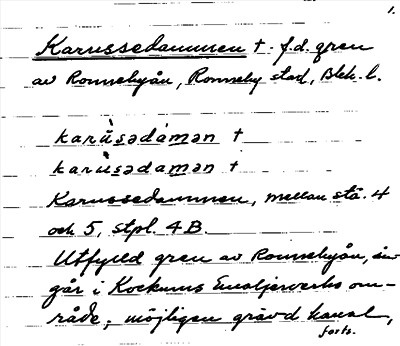 1.
Karussedammen † f.d. gren
av Ronnebyån, Ronneby stad, Blek. l.
karùsədàmən †
karùsədamən †
Karussedammen, mellan stä. 4
och 5, stpl. 4B.
Utfylld gren av Ronnebyån, in-
går i Kockums Emaljerverks om-
råde, möjligen grävd kanal,
forts.